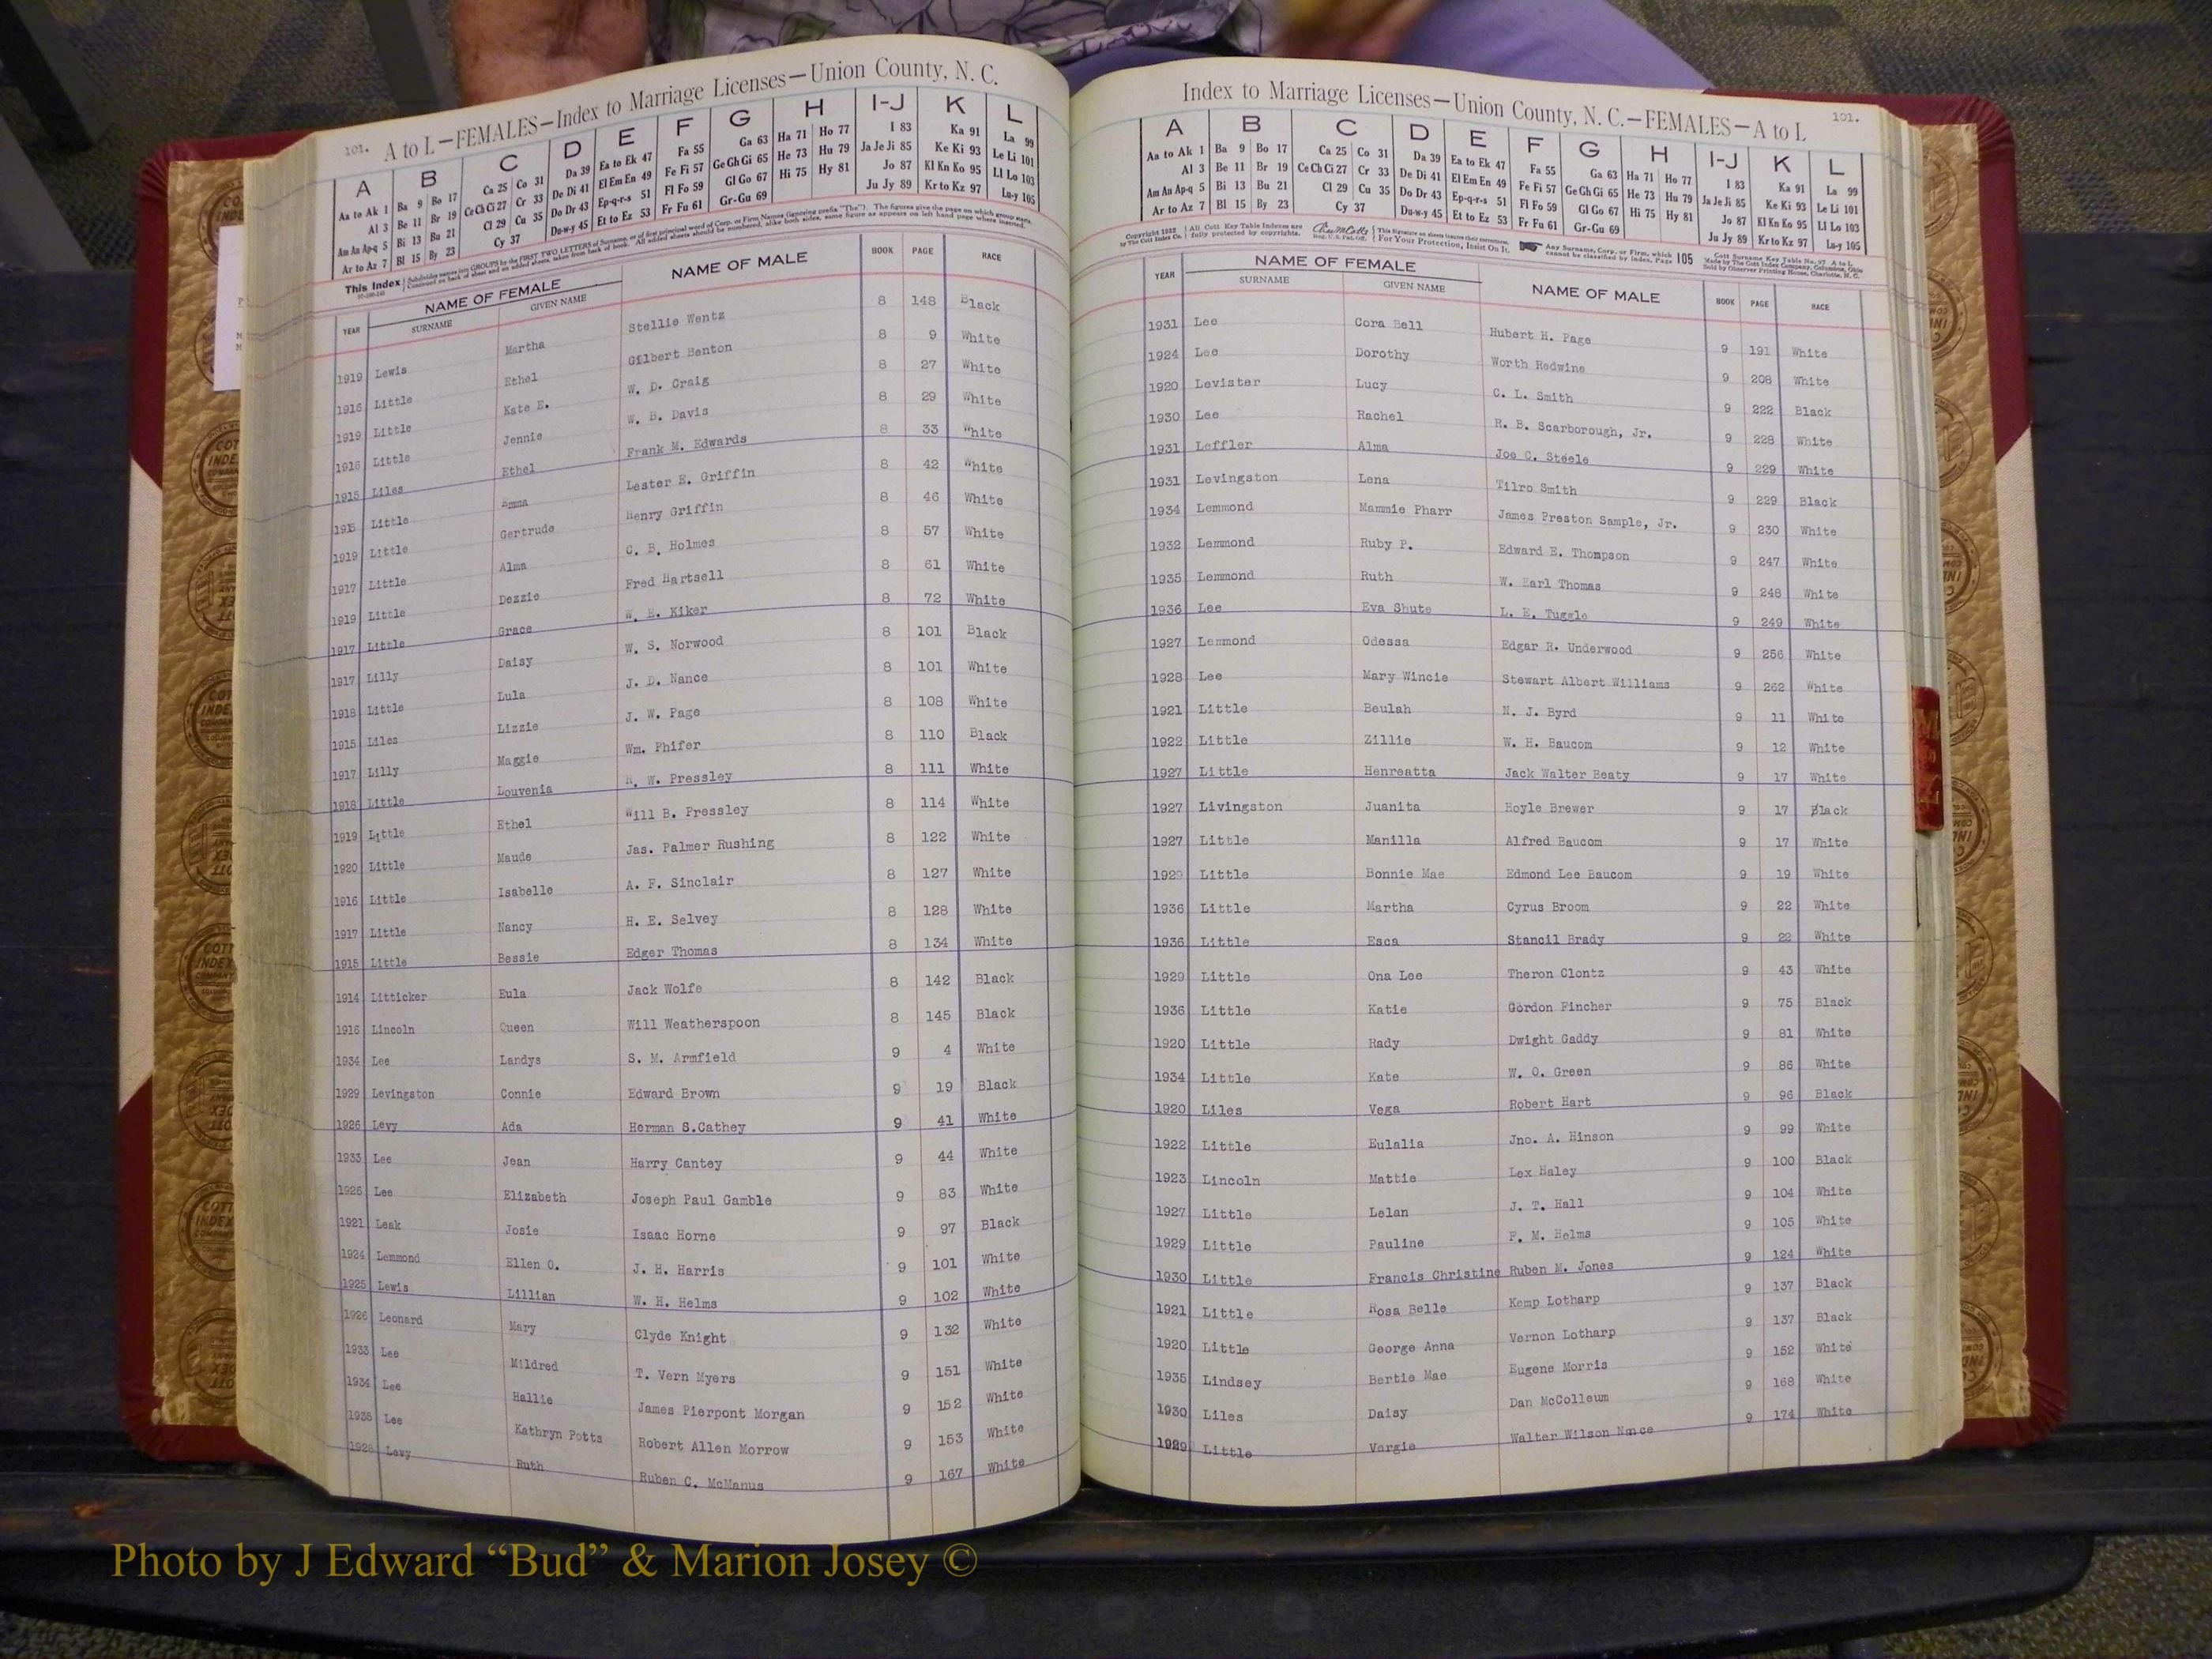 101. A to L—FEMALES—Index to Marriage Licenses—Union County, N. C.
A B C D E F G H I-J K L
Aa to Ak 1 Ba 9 Bo 17 Ca 25 Co 31 Da 39 Ea to Ek 47 Fa 55 Ga 63 Ha 71 Ho 77 I 83 Ka 91 La 99
Al 3 Be 11 Br 19 Ce Ch Ci 27 Cr 33 De Di 41 El Em En 49 Fe Fi 57 Ge Gh Gi 65 He 73 Hu 79 Ja Je Ji 85 Ke Ki 93 Le Li 101
Am An Ap-q 5 Bi 13 Bu 21 Cl 29 Cu 35 Do Dr 43 Ep-q-r-s 51 Fl Fo 59 Gl Go 67 Hi 75 Hy 81 Jo 87 Kl Kn Ko 95 Ll Lo 103
Ar to Az 7 Bl 15 By 23 Cy 37 Du-w-y 45 Et to Ez 53 Fr Fu 61 Gr-Gu 69 Ju Jy 89 Kr to Kz 97 Lu-y 105
This Index Subdivides names into GROUPS by the FIRST TWO LETTERS of Surname, or of first principal word of Corp. or Firm Names (ignoring prefix "The"). The figures give the page on which group starts.
Continued on back of sheet and on added sheets, taken from back of book. All added sheets should be numbered, alike both sides, same figure as appears on left hand page where inserted.
YEAR NAME OF FEMALE SURNAME GIVEN NAME NAME OF MALE BOOK PAGE RACE
1919 Lewis Martha Stellie Wentz 8 148 Black
1916 Little Ethel Gilbert Benton 8 9 White
1919 Little Kate E. W. D. Craig 8 27 White
1916 Little Jennie W. B. Davis 8 29 White
1915 Liles Ethel Frank M. Edwards 8 33 White
1915 Little Emma Lester E. Griffin 8 42 White
1919 Little Gertrude Henry Griffin 8 46 White
1917 Little Alma C. B. Holmes 8 57 White
1919 Little Dezzie Fred Hartsell 8 61 White
1917 Little Grace W. E. Kiker 8 72 White
1917 Lilly Daisy W. S. Norwood 8 101 Black
1918 Little Lula J. D. Nance 8 101 White
1915 Liles Lizzie J. W. Page 8 108 White
1917 Lilly Maggie Wm. Phifer 8 110 Black
1918 Little Louvenia W. Pressley 8 111 White
1919 Little Ethel Will B. Pressley 8 114 White
1920 Little Maude Jas. Palmer Rushing 8 122 White
1916 Little Isabelle A. F. Sinclair 8 127 White
1917 Little Nancy H. E. Selvey 8 128 White
1915 Little Bessie Edger Thomas 8 134 White
1914 Litticker Eula Jack Wolfe 8 142 Black
1916 Lincoln Queen Will Weatherspoon 8 145 Black
1934 Lee Landys S. M. Armfield 9 4 White
1929 Levington Connie Edward Brown 9 19 Black
1926 Levy Ada Herman S.Cathey 9 41 White
1933 Lee Jean Harry Cantey 9 44 White
1926 Lee Elizabeth Joseph Paul Gamble 9 83 White
1921 Leak Josie Isaac Horne 9 97 Black
1924 Lemmond Ellen O. J. H. Harris 9 101 White
1925 Lewis Lillian W. H. Helms 9 102 White
1926 Leonard Mary Clyde Knight 9 132 White
1933 Lee Mildred T. Vern Myers 9 151 White
1934 Lee Hallie James Pierpont Morgan 9 152 White
1935 Lee Kathryn Potts Robert Allen Morrow 9 153 White
1928 Levy Ruth Ruben C. McManus 9 167 White
Index to Marriage Licenses—Union County, N. C.—FEMALES—A to L 101.
A B C D E F G H I-J K L
Aa to Ak 1 Ba 9 Bo 17 Ca 25 Co 31 Da 39 Ea to Ek 47 Fa 55 Ga 63 Ha 71 Ho 77 I 83 Ka 91 La 99
Al 3 Be 11 Br 19 Ce Ch Ci 27 Cr 33 De Di 41 El Em En 49 Fe Fi 57 Ge Gh Gi 65 He 73 Hu 79 Ja Je Ji 85 Ke Ki 93 Le Li 101
Am An Ap-q 5 Bi 13 Bu 21 Cl 29 Cu 35 Do Dr 43 Ep-q-r-s 51 Fl Fo 59 Gl Go 67 Hi 75 Hy 81 Jo 87 Kl Kn Ko 95 Ll Lo 103
Ar to Az 7 Bl 15 By 23 Cy 37 Du-w-y 45 Et to Ez 53 Fr Fu 61 Gr-Gu 69 Ju Jy 89 Kr to Kz 97 Lu-y 105
Copyright 1932 by The Cott Index Co. All Cott Key Table Indexes are fully protected by copyrights. Reg. U. S. Pat. Off. This Signature on sheets insures their correctness. For Your Protection, Insist On It. Any Surname, Corp. or Firm, which cannot be classified by index, Page 105 Cott Surname Key Table No. 97 A to L
Made by The Cott Index Company, Columbus, Ohio
Sold by Observer Printing House, Charlotte, N. C.
YEAR NAME OF FEMALE SURNAME GIVEN NAME NAME OF MALE BOOK PAGE RACE
1931 Lee Cora Bell Hubert H. Page 9 191 White
1924 Lee Dorothy Worth Redwine 9 208 White
1920 Levister Lucy C. L. Smith 9 222 Black
1930 Lee Rachel R. B. Scarborough, Jr. 9 228 White
1931 Leffler Alma Joe C. Steele 9 229 White
1931 Levingston Lena Tilro Smith 9 229 Black
1934 Lemmond Mammie Pharr James Preston Sample, Jr. 9 230 White
1932 Lemmond Ruby P. Edward E. Thompson 9 247 White
1935 Lemmond Ruth W. Earl Thomas 9 248 White
1936 Lee Eva Shute L. E. Tuggle 9 249 White
1927 Lemmond Odessa Edgar R. Underwood 9 256 White
1928 Lee Mary Wincie Stewart Albert Williams 9 262 White
1921 Little Beulah N. J. Byrd 9 11 White
1922 Little Zillie W. H. Baucom 9 12 White
1927 Little Henreatta Jack Walter Beaty 9 17 White
1927 Livingston Juanita Hoyle Brewer 9 17 Black
1927 Little Manilla Alfred Baucom 9 17 White
1929 Little Bonnie Mae Edmond Lee Baucom 9 19 White
1936 Little Martha Cyrus Broom 9 22 White
1936 Little Esca Stancil Brady 9 22 White
1929 Little Ona Lee Theron Clontz 9 43 White
1936 Little Katie Gordon Fincher 9 75 Black
1920 Little Rady Dwight Gaddy 9 81 White
1934 Little Kate W. O. Green 9 86 White
1920 Liles Vega Robert Hart 9 96 Black
1922 Little Eulalia Jno. A. Hinson 9 99 White
1923 Lincoln Mattie Lex Haley 9 100 Black
1927 Little Lelan J. T. Hall 9 104 White
1929 Little Pauline F. M. Helms 9 105 White
1930 Little Francis Christine Ruben M. Jones 9 124 White
1921 Little Rosa Belle Kemp Lotharp 9 137 Black
1920 Little George Anna Vernon Lotharp 9 137 Black
1935 Lindsey Bertie Mae Eugene Morris 9 152 White
1930 Liles Daisy Dan McColleum 9 168 White
1929 Little Vergie Walter Wilson Nance 9 174 White
Photo by J Edward “Bud” & Marion Josey ©